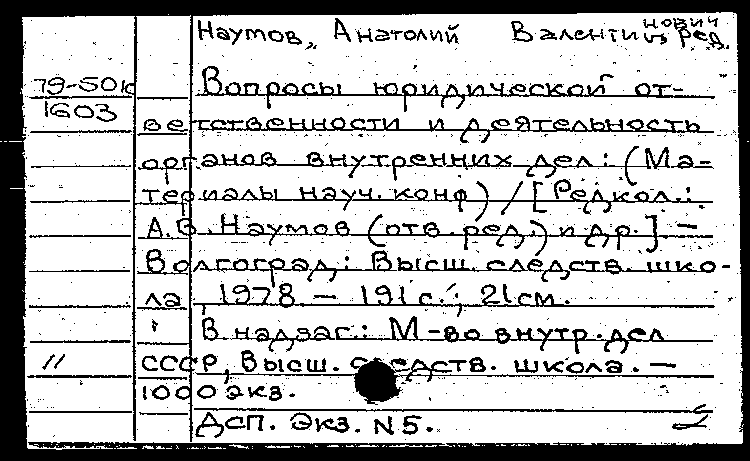 Наумов, Анатолий Валентинович, ред.
79-501с
1603
Вопросы юридической от-
ветственности и деятельность
органов внутренних дел: (Ма-
териалы науч. конф) / [Редкол.:
А.В. Наумов (отв. ред.) и др.] —
Волгоград: Высш. следств. шко-
ла, 1978 — 191 с.; 21 см.
В надзаг.: М-во внутр. дел
// СССР, Высш. следств. школа. —
1000 экз.
ДСП. Экз. N 5.